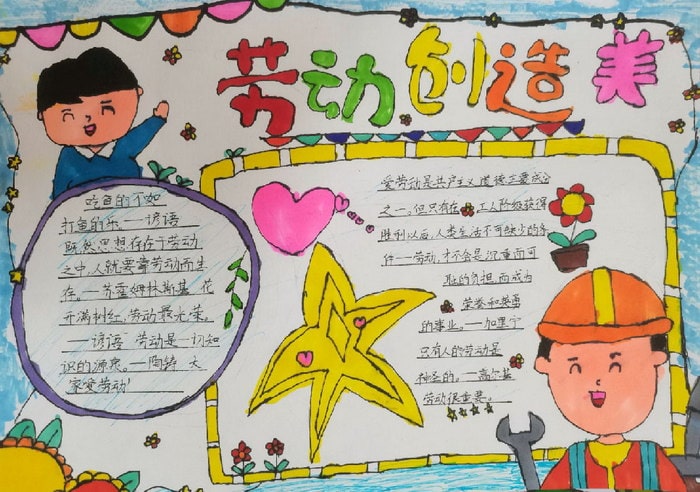 劳动创造美
吃鱼的不如
打鱼的乐。——谚语
既然思想存在于劳动
之中,人就要靠劳动而生
存。——苏霍姆林斯基 花
开满树红,劳动最光荣。
——谚语 劳动是一切知
识的源泉。——陶铸 大
家爱劳动!
爱劳动是共产主义道德主要成分
之一。但只有在工人阶级获得
胜利以后,人类生活不可缺少的条
件——劳动,才不会是沉重而可
耻的负担,而成为
荣誉和英勇
的事业。——加里宁
只有人的劳动是
神圣的。——高尔基
劳动很重要。